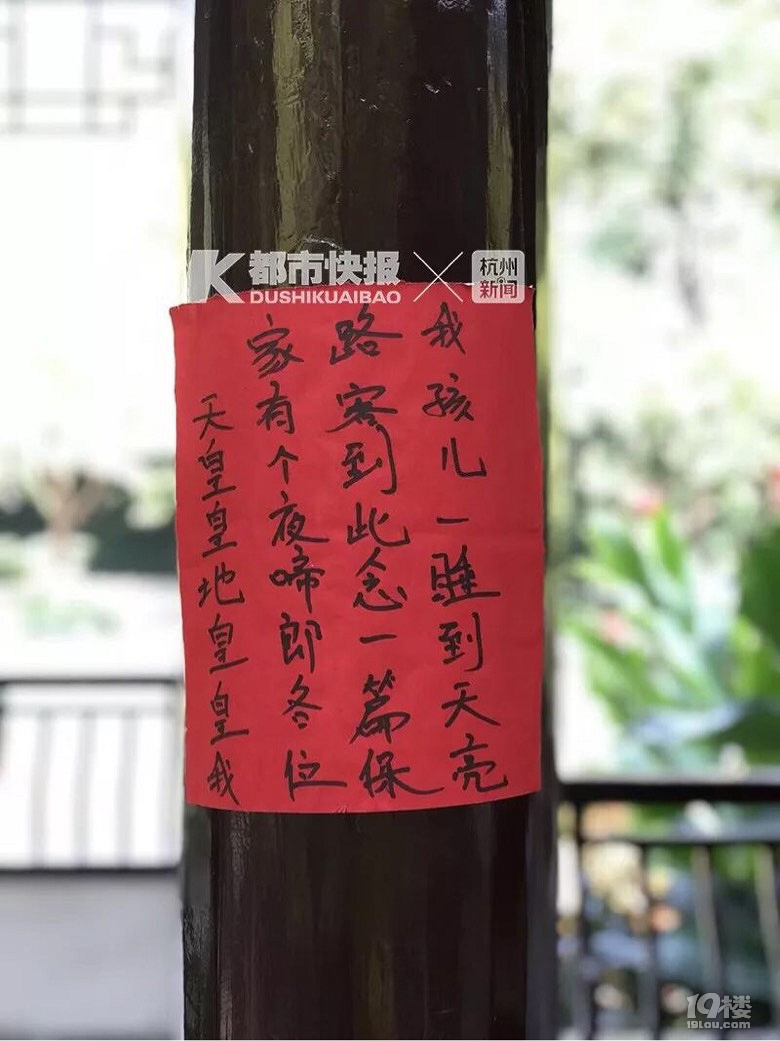 K 都市快报 × 杭州
DUSHIKUAIBAO 新闻
天皇皇地皇皇我
家有个夜啼郎冬位
路客到此念一篇保
我孩儿一睡到天亮
19楼
19lou.com